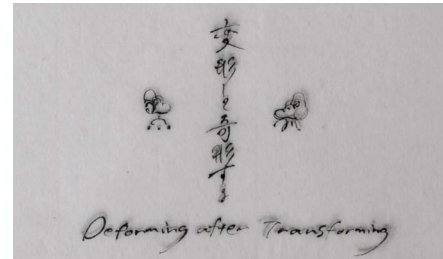 変形と奇形する
Deforming after Transforming